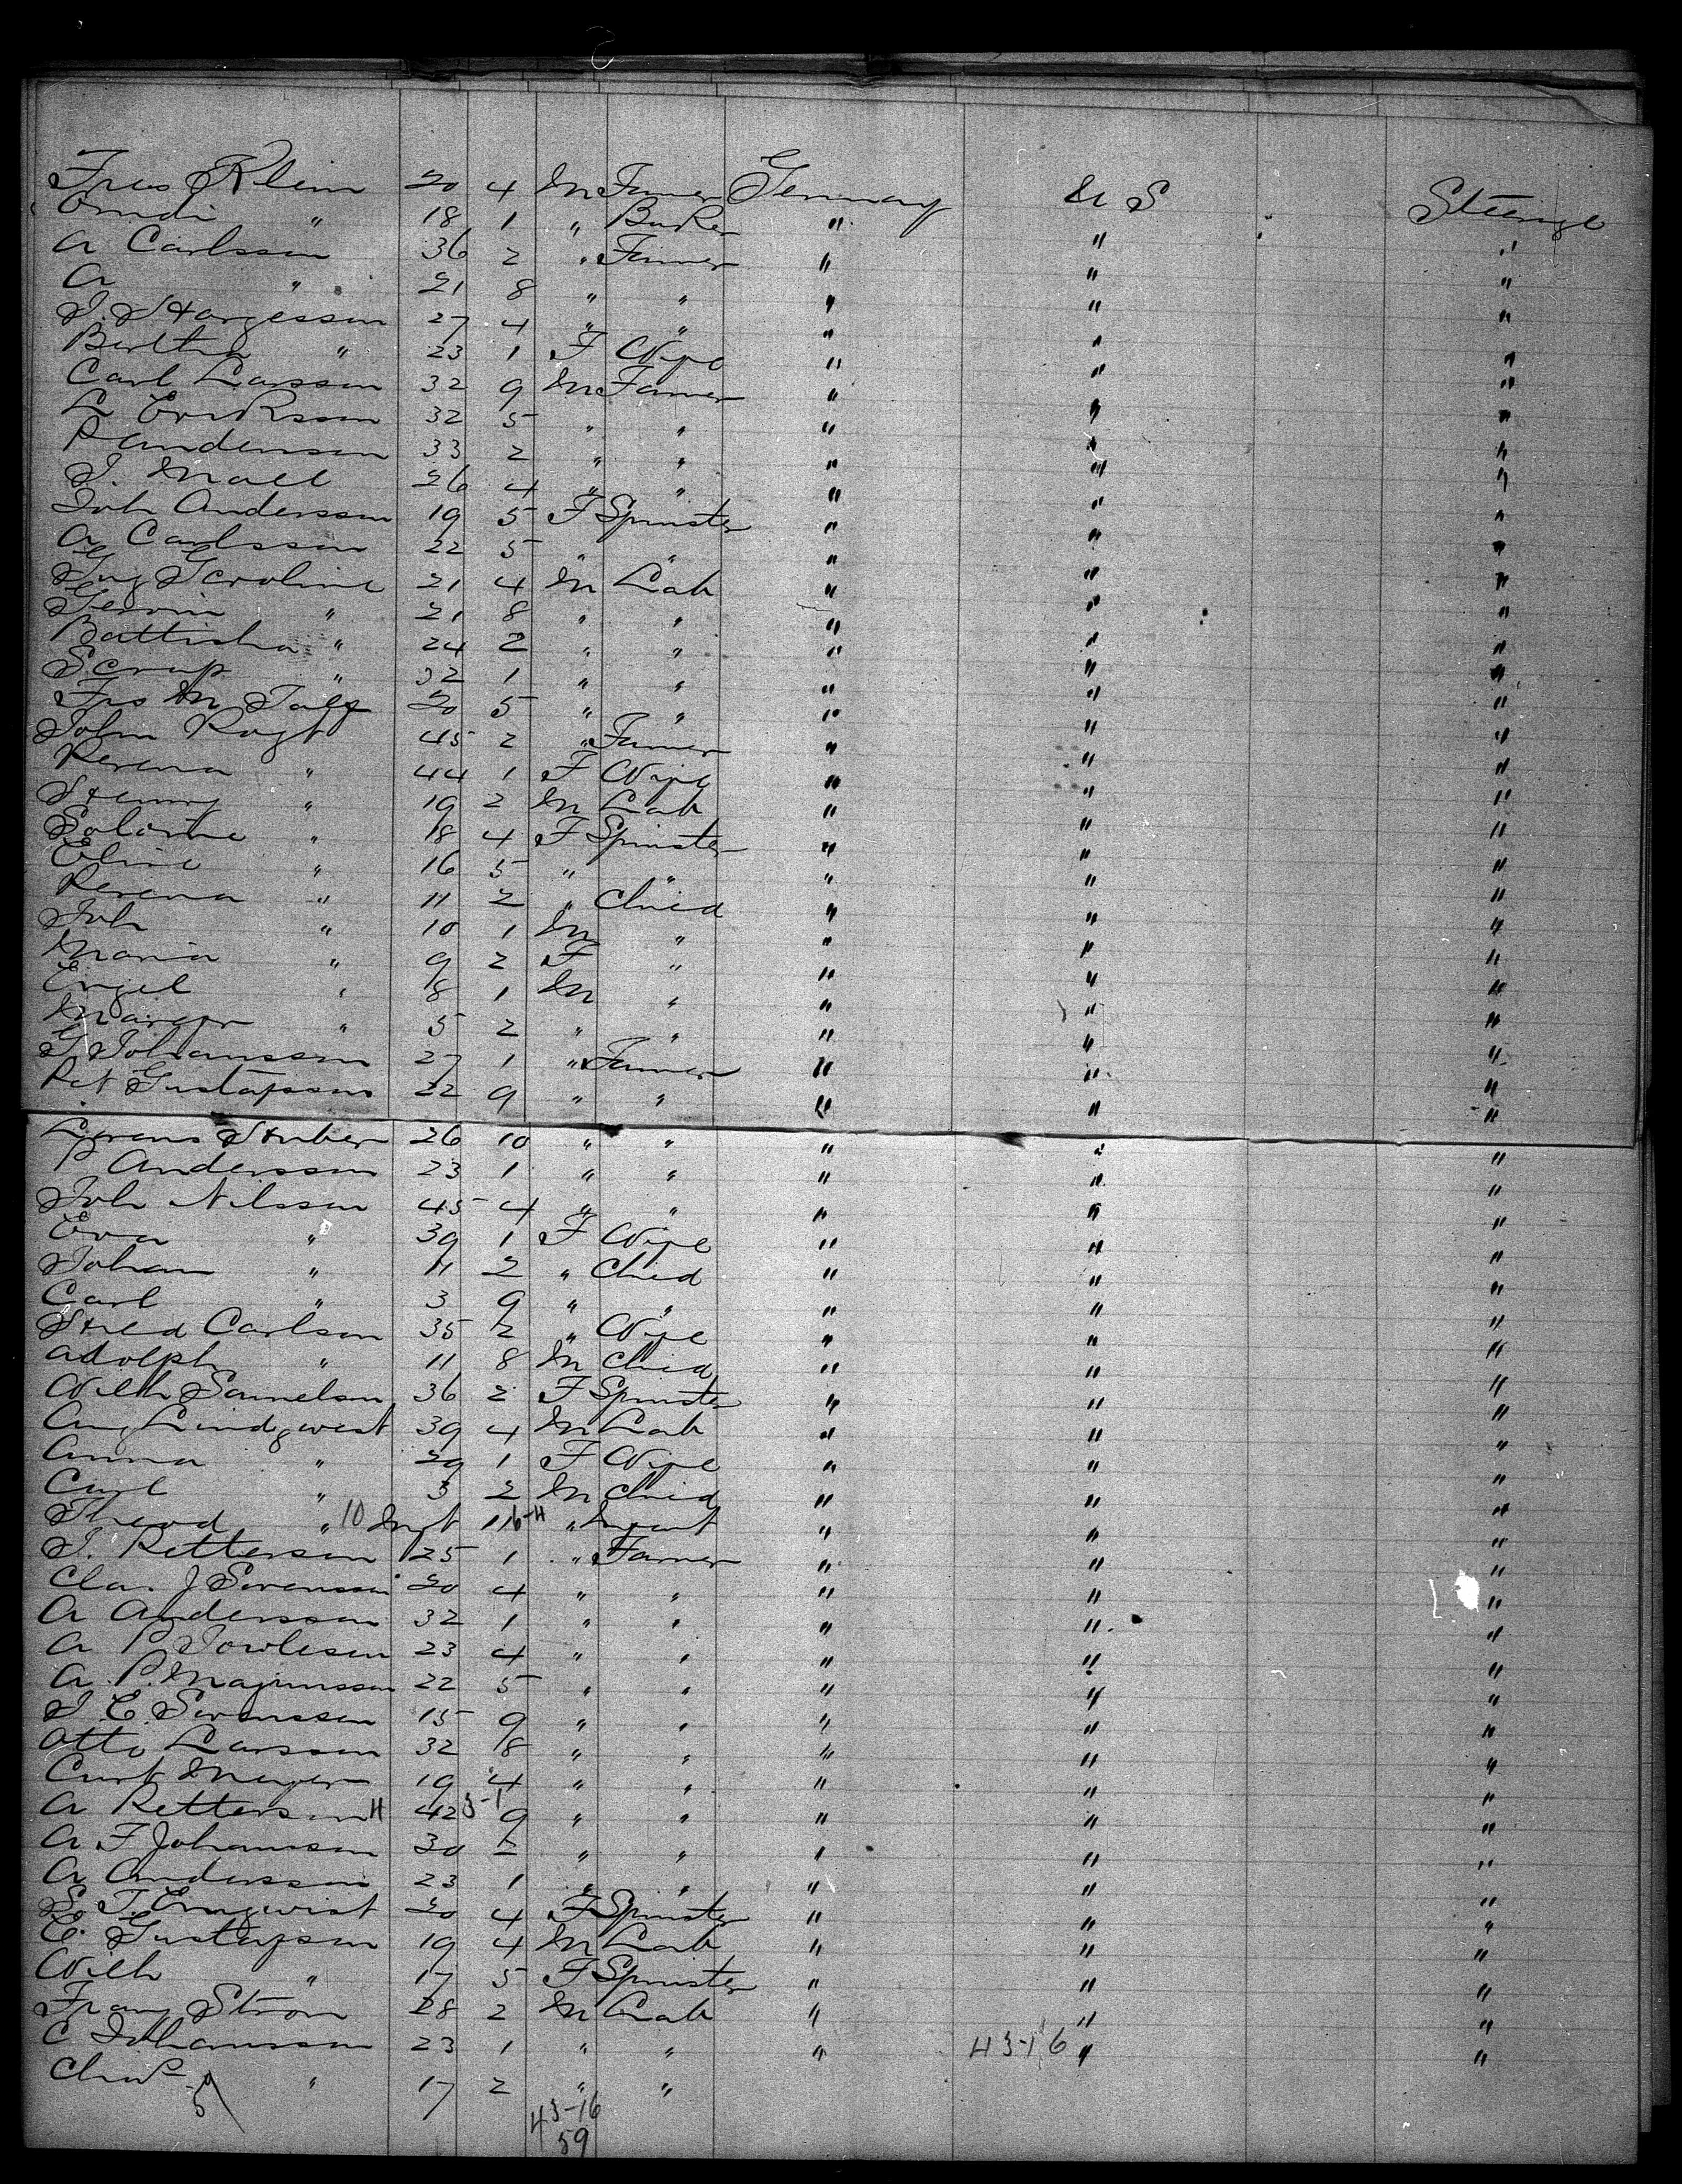 Klein 20 4 M Farmer Germany U S Steerage
" 18 1 " Baker " " "
A Carlsson 36 2 " Farmer " " "
A " 21 8 " " " " "
27 4 " " " " "
Bertha " 23 1 F Wife " " "
Carl Larsson 32 9 M Farmer " " "
L Eriksson 32 5 " " " " "
P Anderson 33 2 " " " " "
J. 26 4 " " " " "
Joh Andersson 19 5 F Spinster " " "
A Carlsson 22 5 " " " " "
21 4 M Lab " " "
" 21 8 " " " " "
Battista " 24 2 " " " " "
" 32 1 " " " " "
20 5 " " " " "
John 45 2 " Farmer " " "
Verena " 44 1 F Wife " " "
Henry " 19 2 M Lab " " "
Salome " 18 4 F Spinster " " "
Elise " 16 5 " " " " "
Verena " 11 2 " Child " " "
Joh " 10 1 M " " " "
Maria " 9 2 F " " " "
Engel " 8 1 M " " " "
" 5 2 " " " " "
G Johansson 27 1 " Farmer " " "
Pet Gustafsson 22 9 " " " " "
Lorens Huber 26 10 " " " " "
P Andersson 23 1 " " " " "
Joh Nilsson 45 4 " " " " "
Eva " 39 1 F Wife " " "
Johan " 11 2 " Child " " "
Carl " 3 9 " " " " "
Carlson 35 2 " Wife " " "
Adolph " 11 8 M Child " " "
Wilh Samelson 36 2 F Spinster " " "
Aug Lindqwest 39 4 M Lab " " "
Anna " 29 1 F Wife " " "
Carl " 3 2 M Child " " "
Theod " 10 Mt 1 16-H " Infant " " "
J. Petterson 25 1 " Farmer " " "
Clas. J Svensson 20 4 " " " " "
A Andersson 32 1 " " " " "
A P 23 4 " " " " "
A. P. Magnusson 22 5 " " " " "
J. C. Svensson 15 9 " " " " "
Otto Larsson 32 8 " " " " "
Curt Meyer 19 4 " " " " "
A Petterson H 42 3-1 9 " " " " "
A F Johansson 30 2 " " " " "
A Andersson 23 1 " " " " "
S. J. Engwist 20 4 F Spinster " " "
E. Gustafson 19 4 M Lab " " "
Wilh " 17 5 F Spinster " " "
Franz Strom 28 2 M Lab " " "
C Johansson 23 1 " " " 43-16 " "
" 17 2 " "
43-16
59